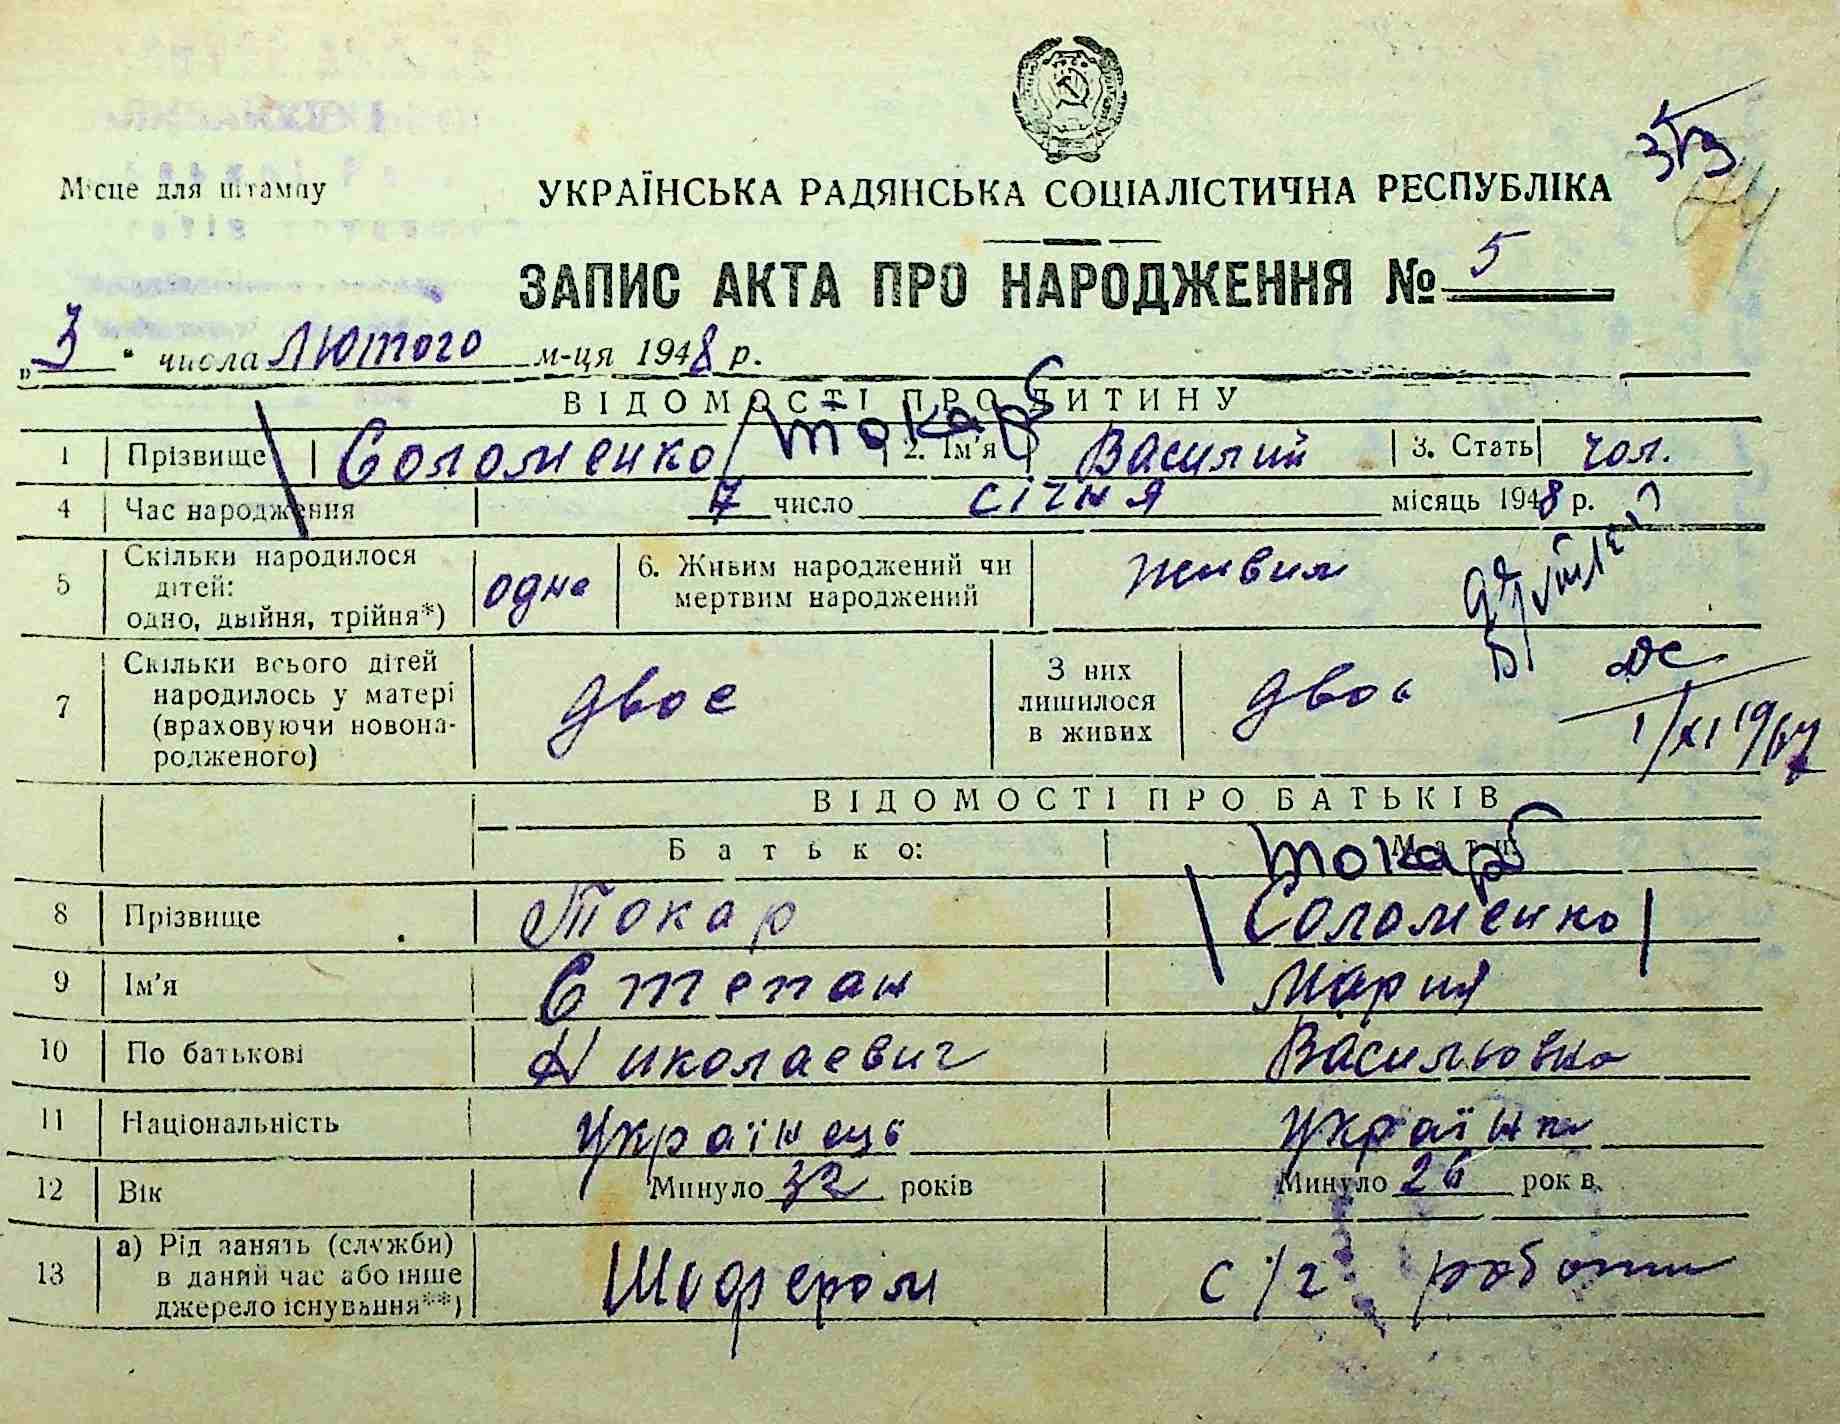 Місце для штампу
УКРАЇНСЬКА РАДЯНСЬКА СОЦІАЛІСТИЧНА РЕСПУБЛІКА
ЗАПИС АКТА ПРО НАРОДЖЕННЯ № 5
„3" числа лютого м-ця 1948 р.
ВІДОМОСТІ ПРО ДИТИНУ
1 Прізвище Соломенко Токарь 2. Ім'я Василий 3. Стать чол.
4 Час народження 7 число січня місяць 1948 р.
5 Скільки народилося дітей: одно, двійня, трійня*) одне 6. Живим народжений чи мертвим народжений живим
7 Скільки всього дітей народилось у матері (враховуючи новонародженого) двоє З них лишилося в живих двоє
1/XI 1967
ВІДОМОСТІ ПРО БАТЬКІВ
Батько: Мати:
Токарь
8 Прізвище Токар Соломенко
9 Ім'я Степан Мария
10 По батькові Николаевич Васильовна
11 Національність Українець Українка
12 Вік Минуло 32 років Минуло 26 років
13 а) Рід занять (служби) в даний час або інше джерело існування**) Шофером с/г робота